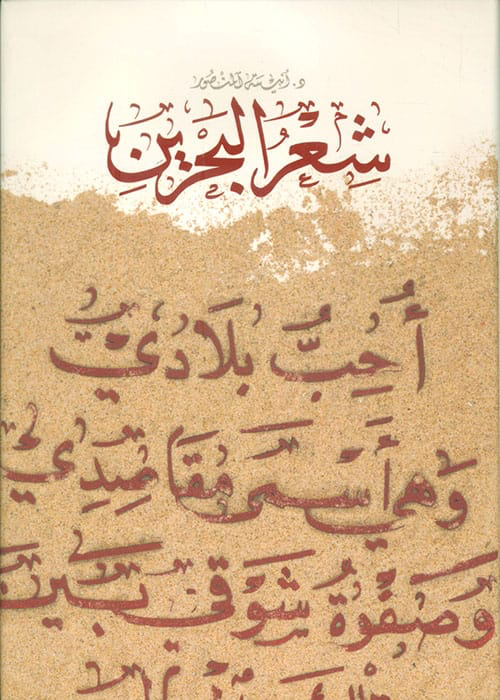 د. أنيسة المنصور
شِعْرُ البَحْرَيْنِ
أُحِبُّ بِلَادِيْ
وَهْيَ أَسْمَى مَقَاصِدِي
وَصَفْوَةُ شَوْقِي بَيْنَ